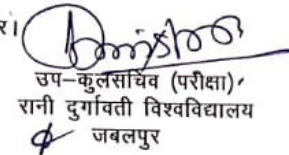 र।
उप-कुलसचिव (परीक्षा)
रानी दुर्गावती विश्वविद्यालय
जबलपुर